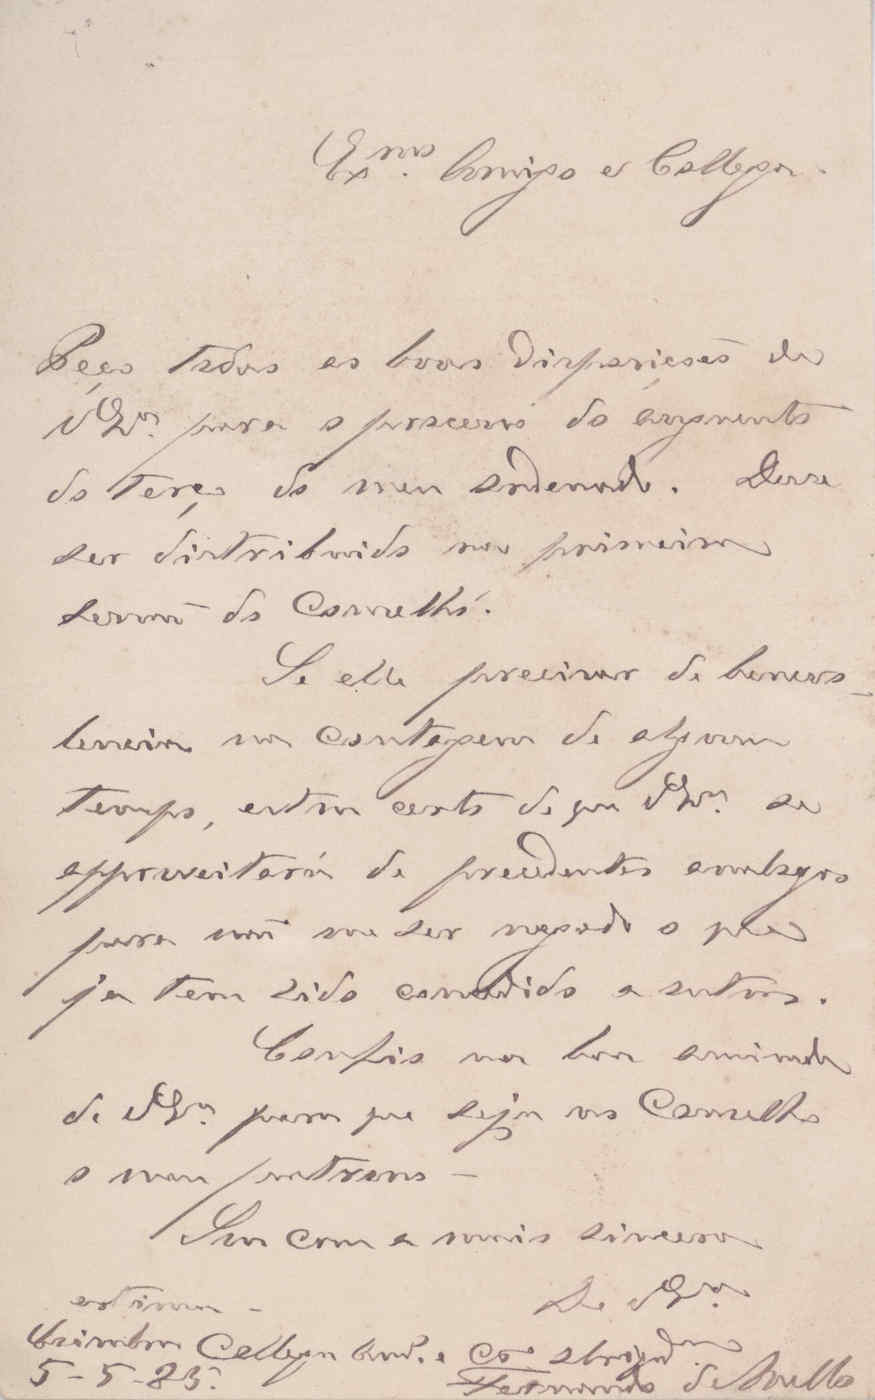 Exmo. Amigo e Collega.
Peço todas as boas disposições de
V. Exa. para o processo do augmento
do terço do meu ordenado. Deve
ser distribuido na primeira
sessão do Conselho.
Se elle precisar de benevo-
lencia na contagem de algum
tempo, estou certo de que V. Exa. se
approveitará de precedentes analogos
para não me ser negado o que
já tem sido concedido a outros.
Confio na boa amisade
de V. Exa. para que seja no Conselho
o meu patrono —
Sou com a mais sincera
estima — De V. Exa.
Coimbra Collega Amo. e Co obrigadmo
5-5-85. Fernando de Mello